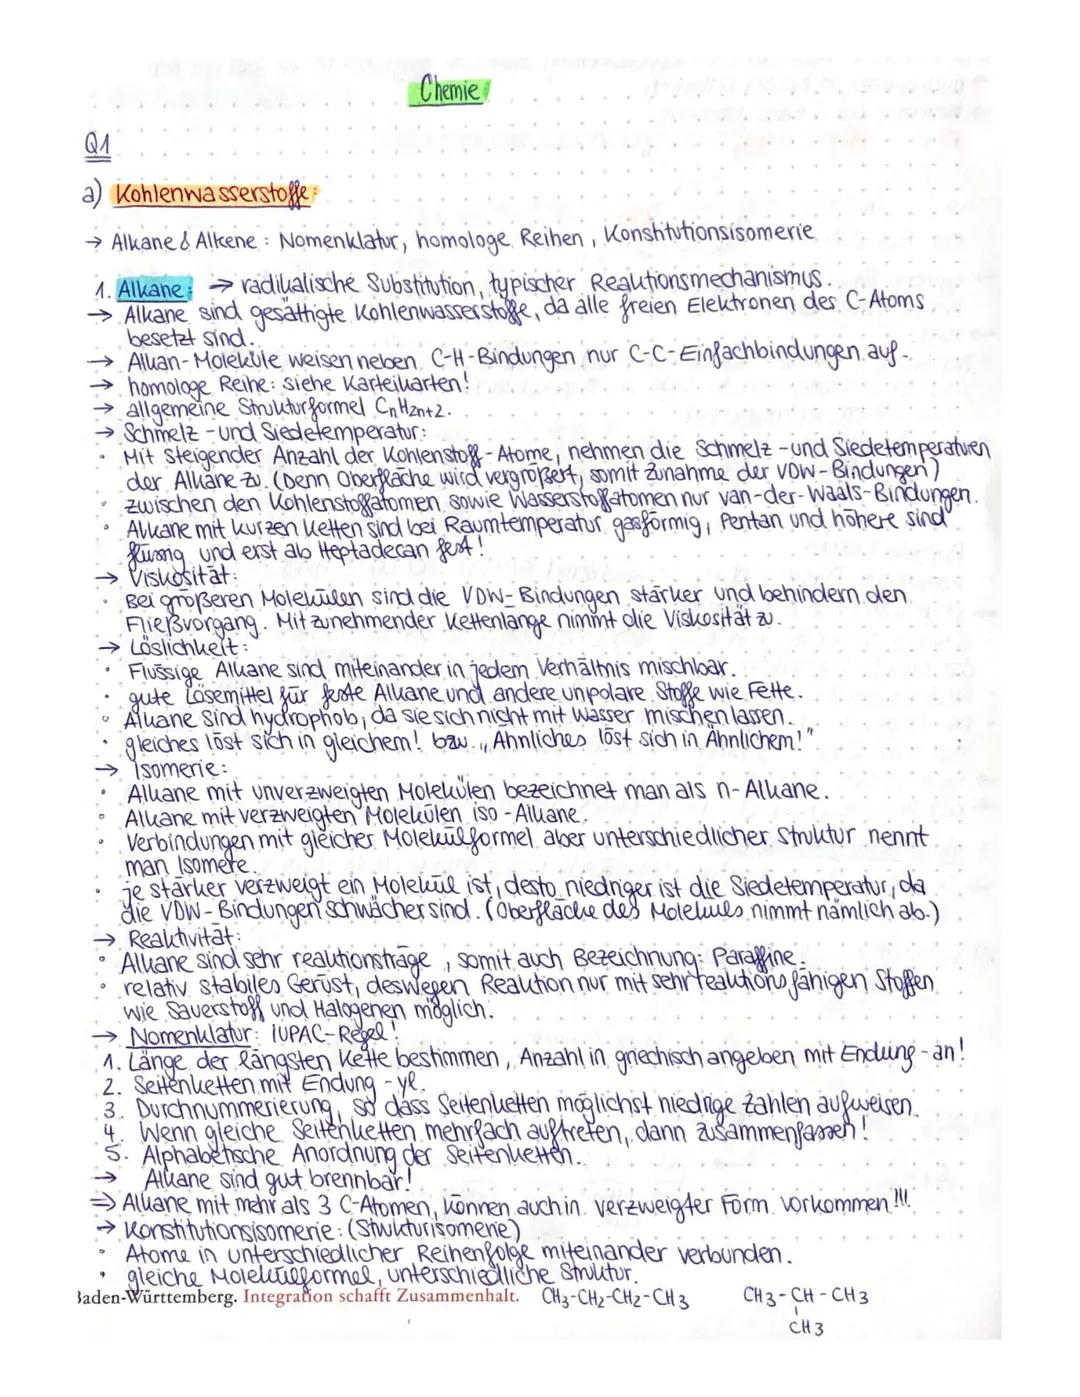 Chemie
Q1
a) Kohlenwasserstoffe:
→ Alkane & Alkene : Nomenklatur, homologe Reihen, Konstitutionsisomerie
1. Alkane: → radikalische Substitution, typischer Reaktionsmechanismus.
→ Alkane sind gesättigte Kohlenwasserstoffe, da alle freien Elektronen des C-Atoms
besetzt sind.
→ Alkan-Moleküle weisen neben C-H-Bindungen nur C-C-Einfachbindungen auf.
→ homologe Reihe: siehe Karteikarten!
→ allgemeine Strukturformel CnH2n+2.
→ Schmelz-und Siedetemperatur:
• Mit steigender Anzahl der Kohlenstoff-Atome, nehmen die Schmelz-und Siedetemperaturen
der Alkane zu. (Denn Oberfläche wird vergrößert, somit Zunahme der VDW-Bindungen)
• zwischen den Kohlenstoffatomen sowie Wasserstoffatomen nur van-der-Waals-Bindungen.
• Alkane mit kurzen Ketten sind bei Raumtemperatur gasförmig, Pentan und höhere sind
flüssig und erst ab Heptadecan fest!
→ Viskosität:
• Bei größeren Molekülen sind die VDW-Bindungen stärker und behindern den
Fließvorgang. Mit zunehmender Kettenlänge nimmt die Viskosität zu.
→ Löslichkeit:
• Flüssige Alkane sind miteinander in jedem Verhältnis mischbar.
• gute Lösemittel für feste Alkane und andere unpolare Stoffe wie Fette.
• Alkane sind hydrophob, da sie sich nicht mit Wasser mischen lassen.
• gleiches löst sich in gleichem! bzw. „Ähnliches löst sich in Ähnlichem!"
→ Isomerie:
• Alkane mit unverzweigten Molekülen bezeichnet man als n-Alkane.
• Alkane mit verzweigten Molekülen iso-Alkane.
• Verbindungen mit gleicher Molekülformel aber unterschiedlicher Struktur nennt
man Isomere.
• je stärker verzweigt ein Molekül ist, desto niedriger ist die Siedetemperatur, da
die VDW-Bindungen schwächer sind. (Oberfläche des Moleküls nimmt nämlich ab.)
→ Reaktivität:
• Alkane sind sehr reaktionsträge, somit auch Bezeichnung: Paraffine.
• relativ stabiles Gerüst, deswegen Reaktion nur mit sehr reaktionsfähigen Stoffen
wie Sauerstoff und Halogenen möglich.
→ Nomenklatur: IUPAC-Regel!
1. Länge der längsten Kette bestimmen, Anzahl in griechisch angeben mit Endung -an!
2. Seitenketten mit Endung -yl.
3. Durchnummerierung, so dass Seitenketten möglichst niedrige Zahlen aufweisen.
4. Wenn gleiche Seitenketten mehrfach auftreten, dann zusammenfassen!
5. Alphabetische Anordnung der Seitenketten.
→ Alkane sind gut brennbar!
⇒ Alkane mit mehr als 3 C-Atomen, können auch in verzweigter Form vorkommen!!!
→ Konstitutionsisomerie: (Strukturisomerie)
• Atome in unterschiedlicher Reihenfolge miteinander verbunden.
• gleiche Molekülformel, unterschiedliche Struktur.
Baden-Württemberg. Integration schafft Zusammenhalt. CH3-CH2-CH2-CH3 CH3-CH-CH3
CH3